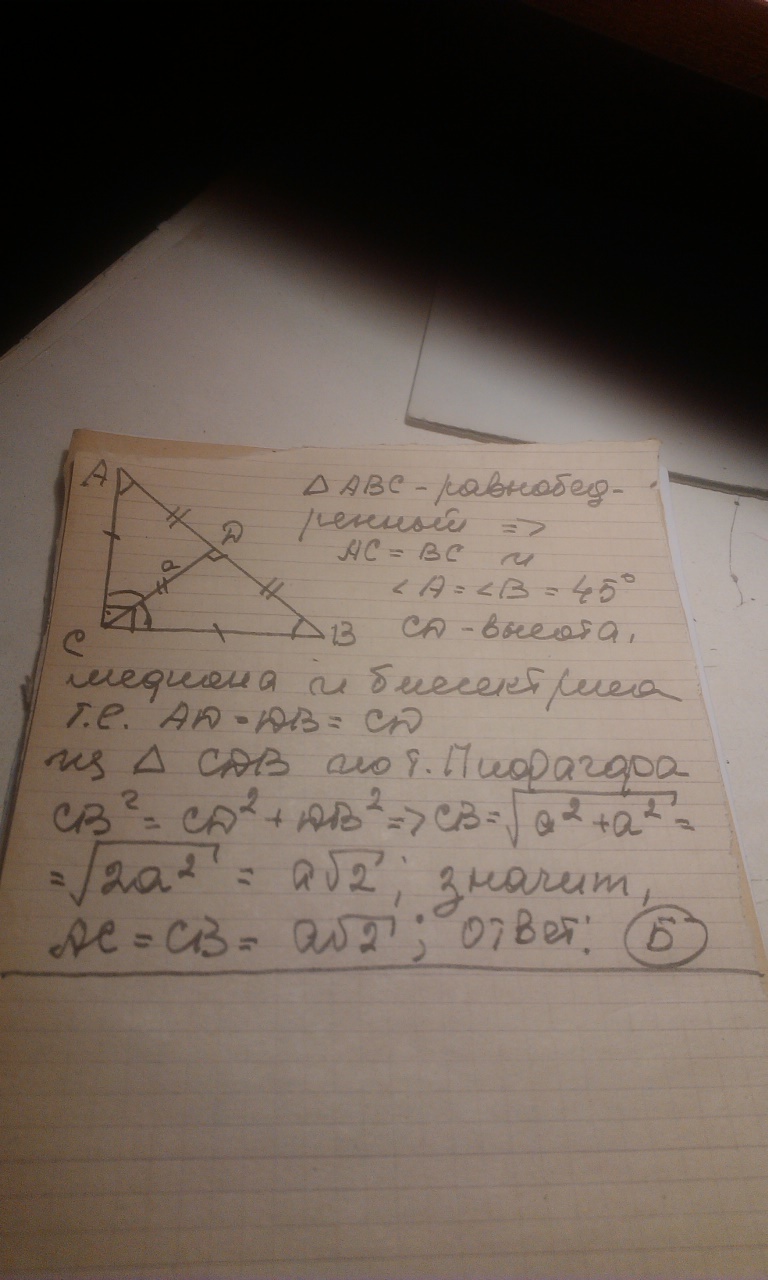 A
D
a
C
B
△ ABC - равнобед-
ренный =>
AC = BC и
∠A = ∠B = 45°
CD - высота,
медиана и биссектриса
т.е. AD = DB = CD
из △ CDB по т. Пифагора
CB² = CD² + DB² => CB = √a² + a² =
= √2a² = a√2; значит,
AC = CB = a√2; ответ: Б